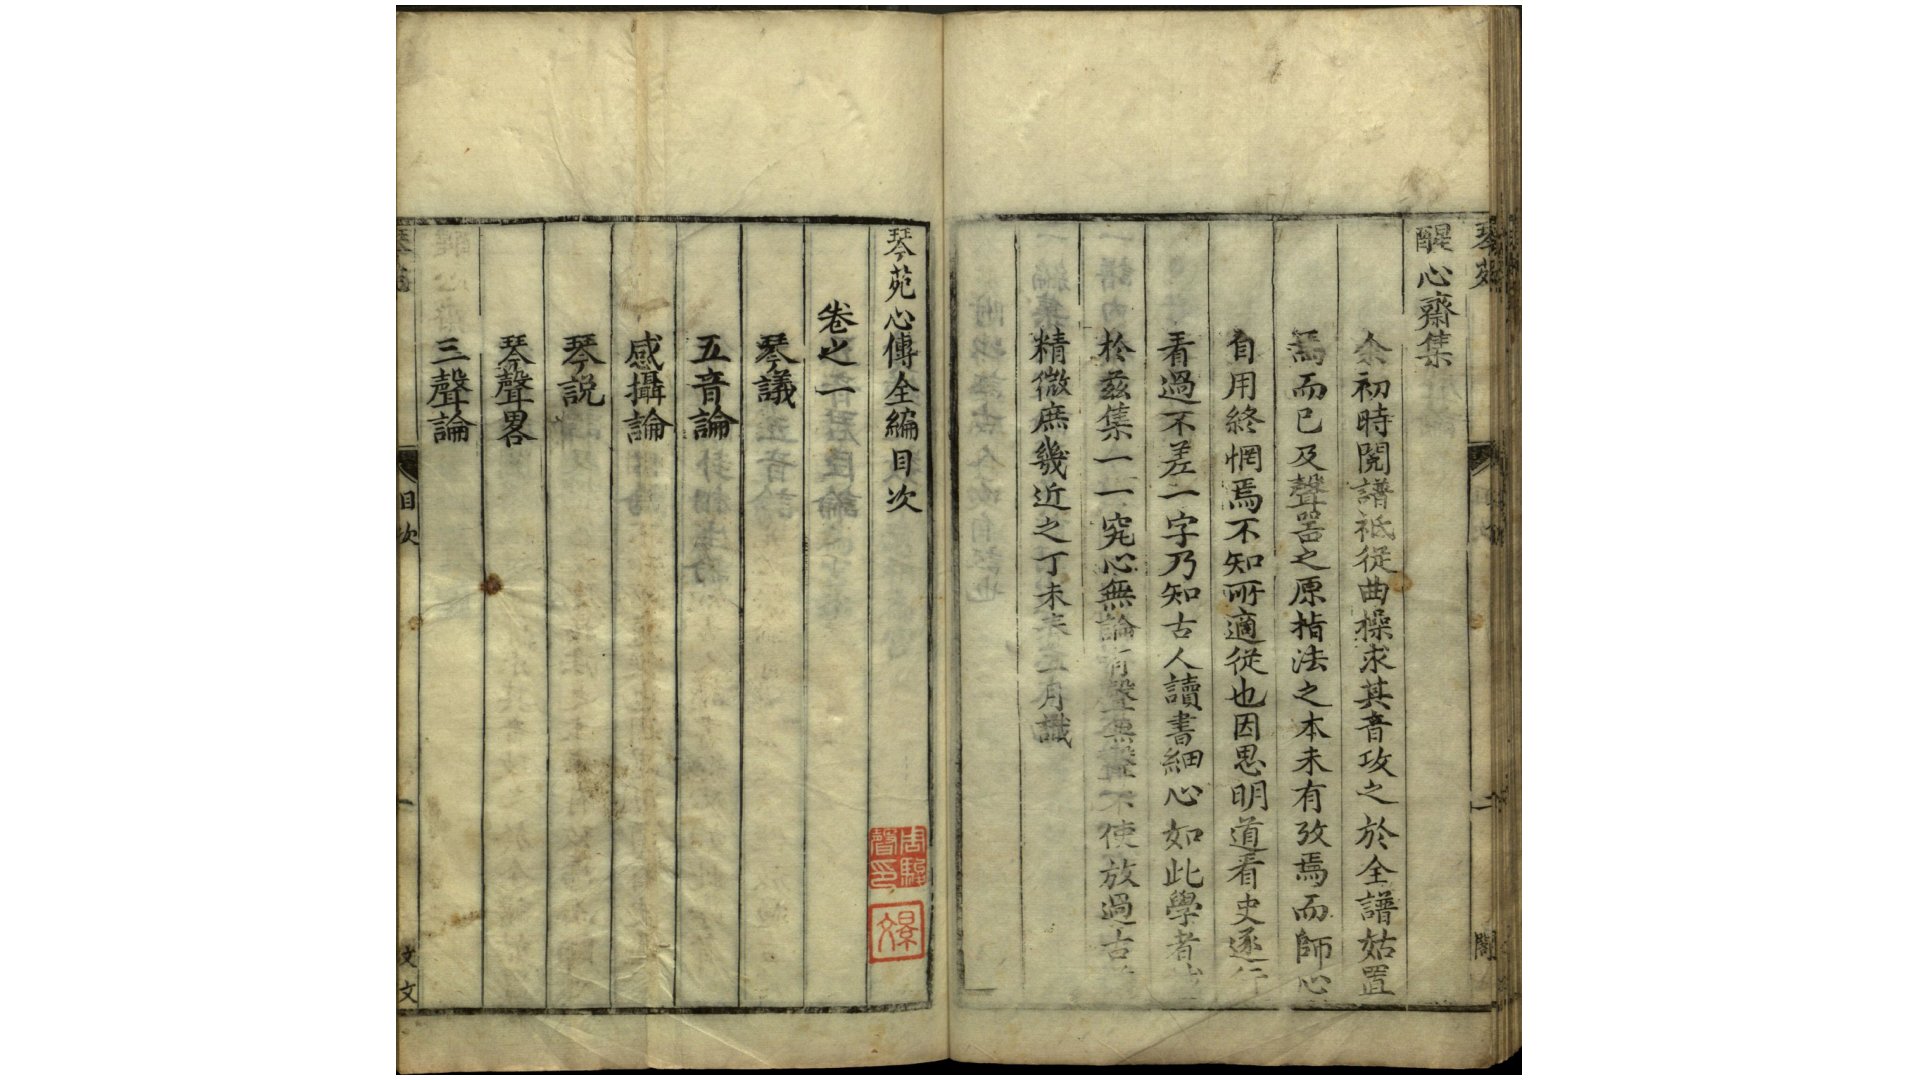 醒心齋集
余初時閱譜祗從曲操求其音攻之於全譜姑置
焉而已及聲器之原指法之本未有攷焉而師心
自用終惘焉不知所適從也因思明道看史逐行
看過不差一字乃知古人讀書細心如此學者
於兹集一一究心無論有聲無聲不使放過古
精微庶幾近之丁未 月識
琴苑心傳全編目次
卷之一
琴議
五音論
感攝論
琴説
琴聲畧
三聲論
目次
一
文